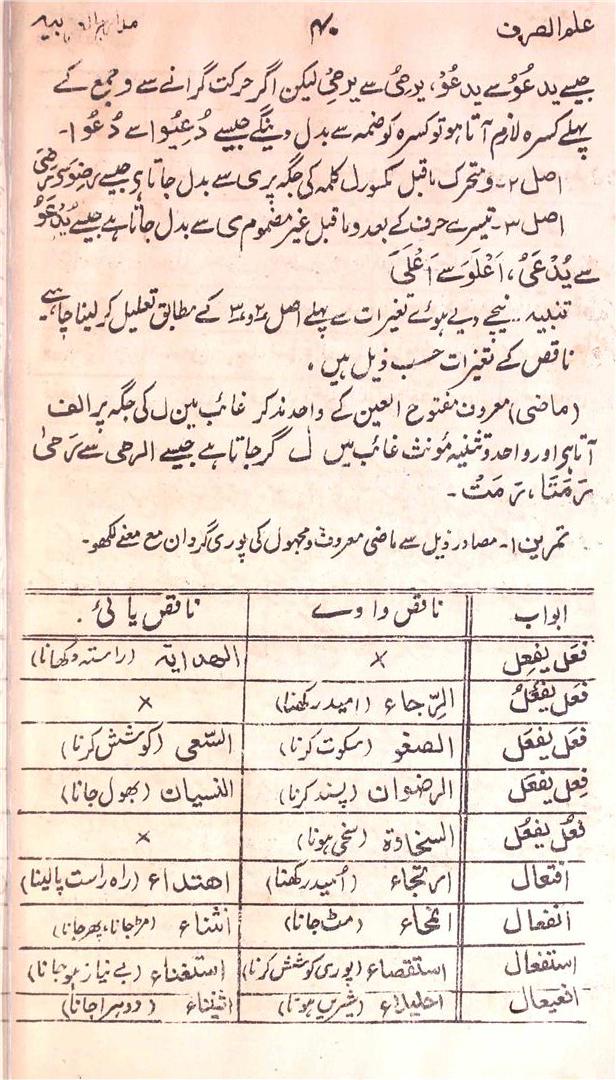 علم الصرف ۴۰
جیسے یدعُوُ سے یدعُوْ، یرمیُ سے یرمیْ لیکن اگر حرکت گرانے سے و جمع کے
پہلے کسرہ لازم آتا ہو تو کسرہ کو ضمہ سے بدل دینگے جیسے دُعِیُوا سے دُعُوا۔
اصل ۲۔ و متحرک ماقبل مکسور ل کلمہ کی جگہ پر ی سے بدل جاتا ہی جیسے رضِوَ سے رضِیَ
اصل ۳۔ تیسرے حرف کے بعد و ماقبل غیر مضموم ی سے بدل جاتا ہے جیسے یُدْعَوُ
سے یُدْعَیُ، اَعْلَوَ سے اَعْلَیَ
تنبیہ .. نیچے دیے ہوئے تغیرات سے پہلے اصل ۲ و ۳ کے مطابق تعلیل کر لینا چاہیے
ناقص کے تغیرات حسب ذیل ہیں۔
(ماضی) معروف مفتوح العین کے واحد مذکر غائب میں ل کی جگہ پر الف
آتا ہی اور واحد و تثنیہ مؤنث غائب میں ل گر جاتا ہے جیسے الرمی سے رَمیٰ
رَمَتَا، رَمَتْ۔
تمرین ۱۔ مصادر ذیل سے ماضی معروف و مجہول کی پوری گردان مع معنے لکھو۔
ابواب ناقص واوے ناقص یائی۔
فعَل یفعِل × الھدایۃ (راستہ دکھانا)
فعَل یفعُل الرّجاء (امید رکھنا) ×
فعَل یفعَل الصغو (سکوت کرنا) السّعی (کوشش کرنا)
فعِل یفعَل الرضوان (پسند کرنا) النسیان (بھول جانا)
فعُل یفعُل السخاوۃ (سخی ہونا) ×
افتعال ارتجاء (اُمید رکھنا) اھتداء (راہ راست پالینا)
انفعال انمحاء (مٹ جانا) انثناء (مڑ جانا، پھر جانا)
استفعال استقصاء (پوری کوشش کرنا) استغناء (بے نیاز ہو جانا)
افعیعال احلیلاء (شیریں ہونا) اثینناء (دوہرا جانا)